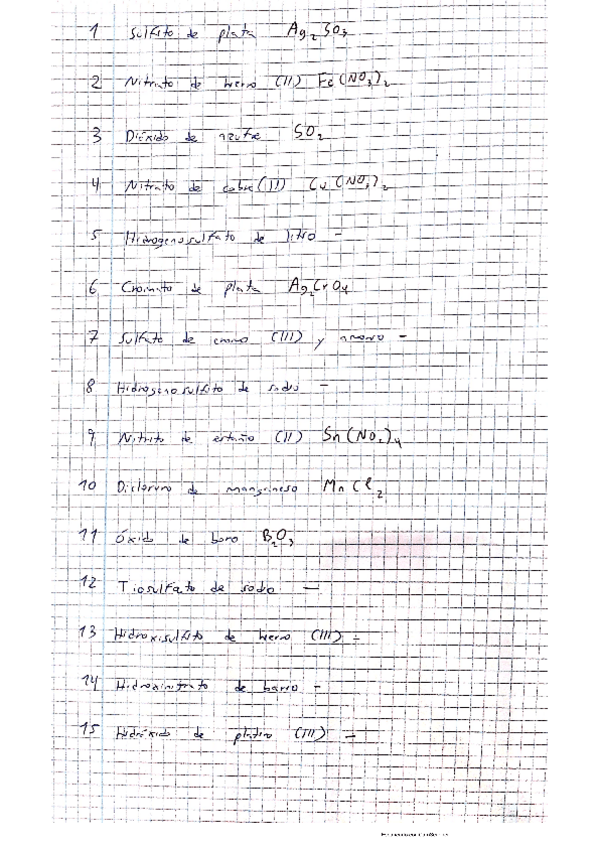 1 Sulfito de plata Ag₂SO₃
2 Nitrato de hierro (II) Fe(NO₃)₂
3 Dióxido de azufre SO₂
4 Nitrato de cobre (II) Cu(NO₃)₂
5 Hidrogenosulfato de litio -
6 Cromato de plata Ag₂CrO₄
7 Sulfato de cromo (III) y amonio -
8 Hidrogenosulfito de sodio -
9 Nitrito de estaño (II) Sn(NO₂)₄
10 Dicloruro de manganeso MnCl₂
11 Óxido de boro B₂O₃
12 Tiosulfato de sodio -
13 Hidroxisulfato de hierro (III) -
14 Hidroxinitrato de bario -
15 Hidróxido de platino (III) -